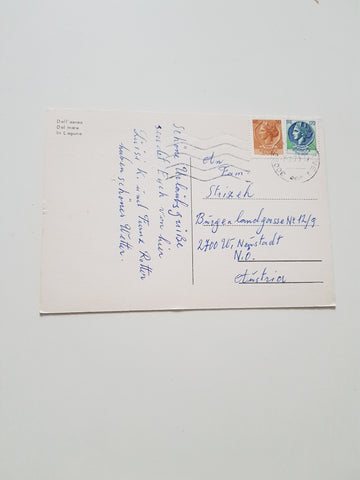 Dall'aereo
Dal mare
In Laguna
Schöne Urlaubsgrüße
sendet Euch von hier
Luisi K. und Franz Rotter
haben schönes Wetter.
An
Fam.
Strizek
Burgenlandgasse Nr 12/9
2700 Wr. Neustadt
N.Ö.
Austria